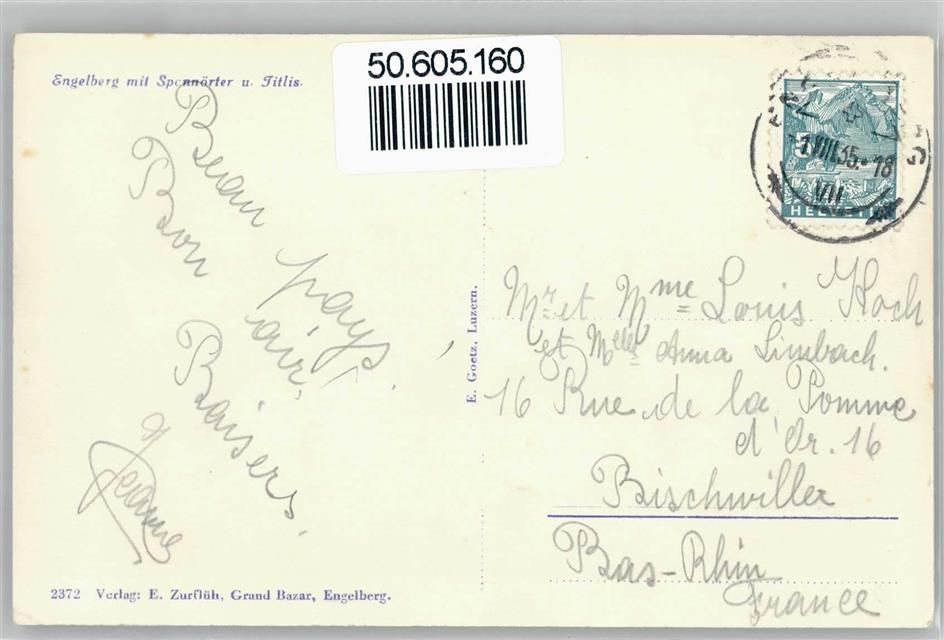 50.605.160
Engelberg mit Spannörter u. Titlis.
Beau pays.
Bon air.
Baisers.
Jeanne
E. Goetz, Luzern.
1.VIII.35.-18
VII
5
HELVETIA
Mr et Mme Louis Hoch
et Melle Anna Limbach.
16 Rue de la Pomme
d'Or. 16
Bischwiller
Bas-Rhin
France
2372 Verlag: E. Zurflüh, Grand Bazar, Engelberg.